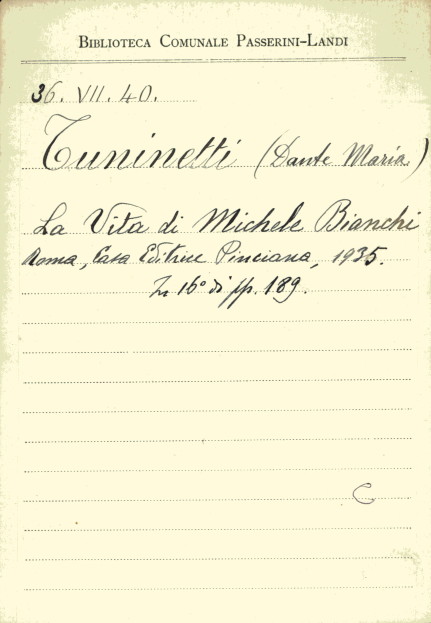 BIBLIOTECA COMUNALE PASSERINI-LANDI
36. VII. 40.
Tuninetti (Dante Maria)
La Vita di Michele Bianchi
Roma, Casa Editrice Pinciana, 1935.
In 16° di pp. 189.
C